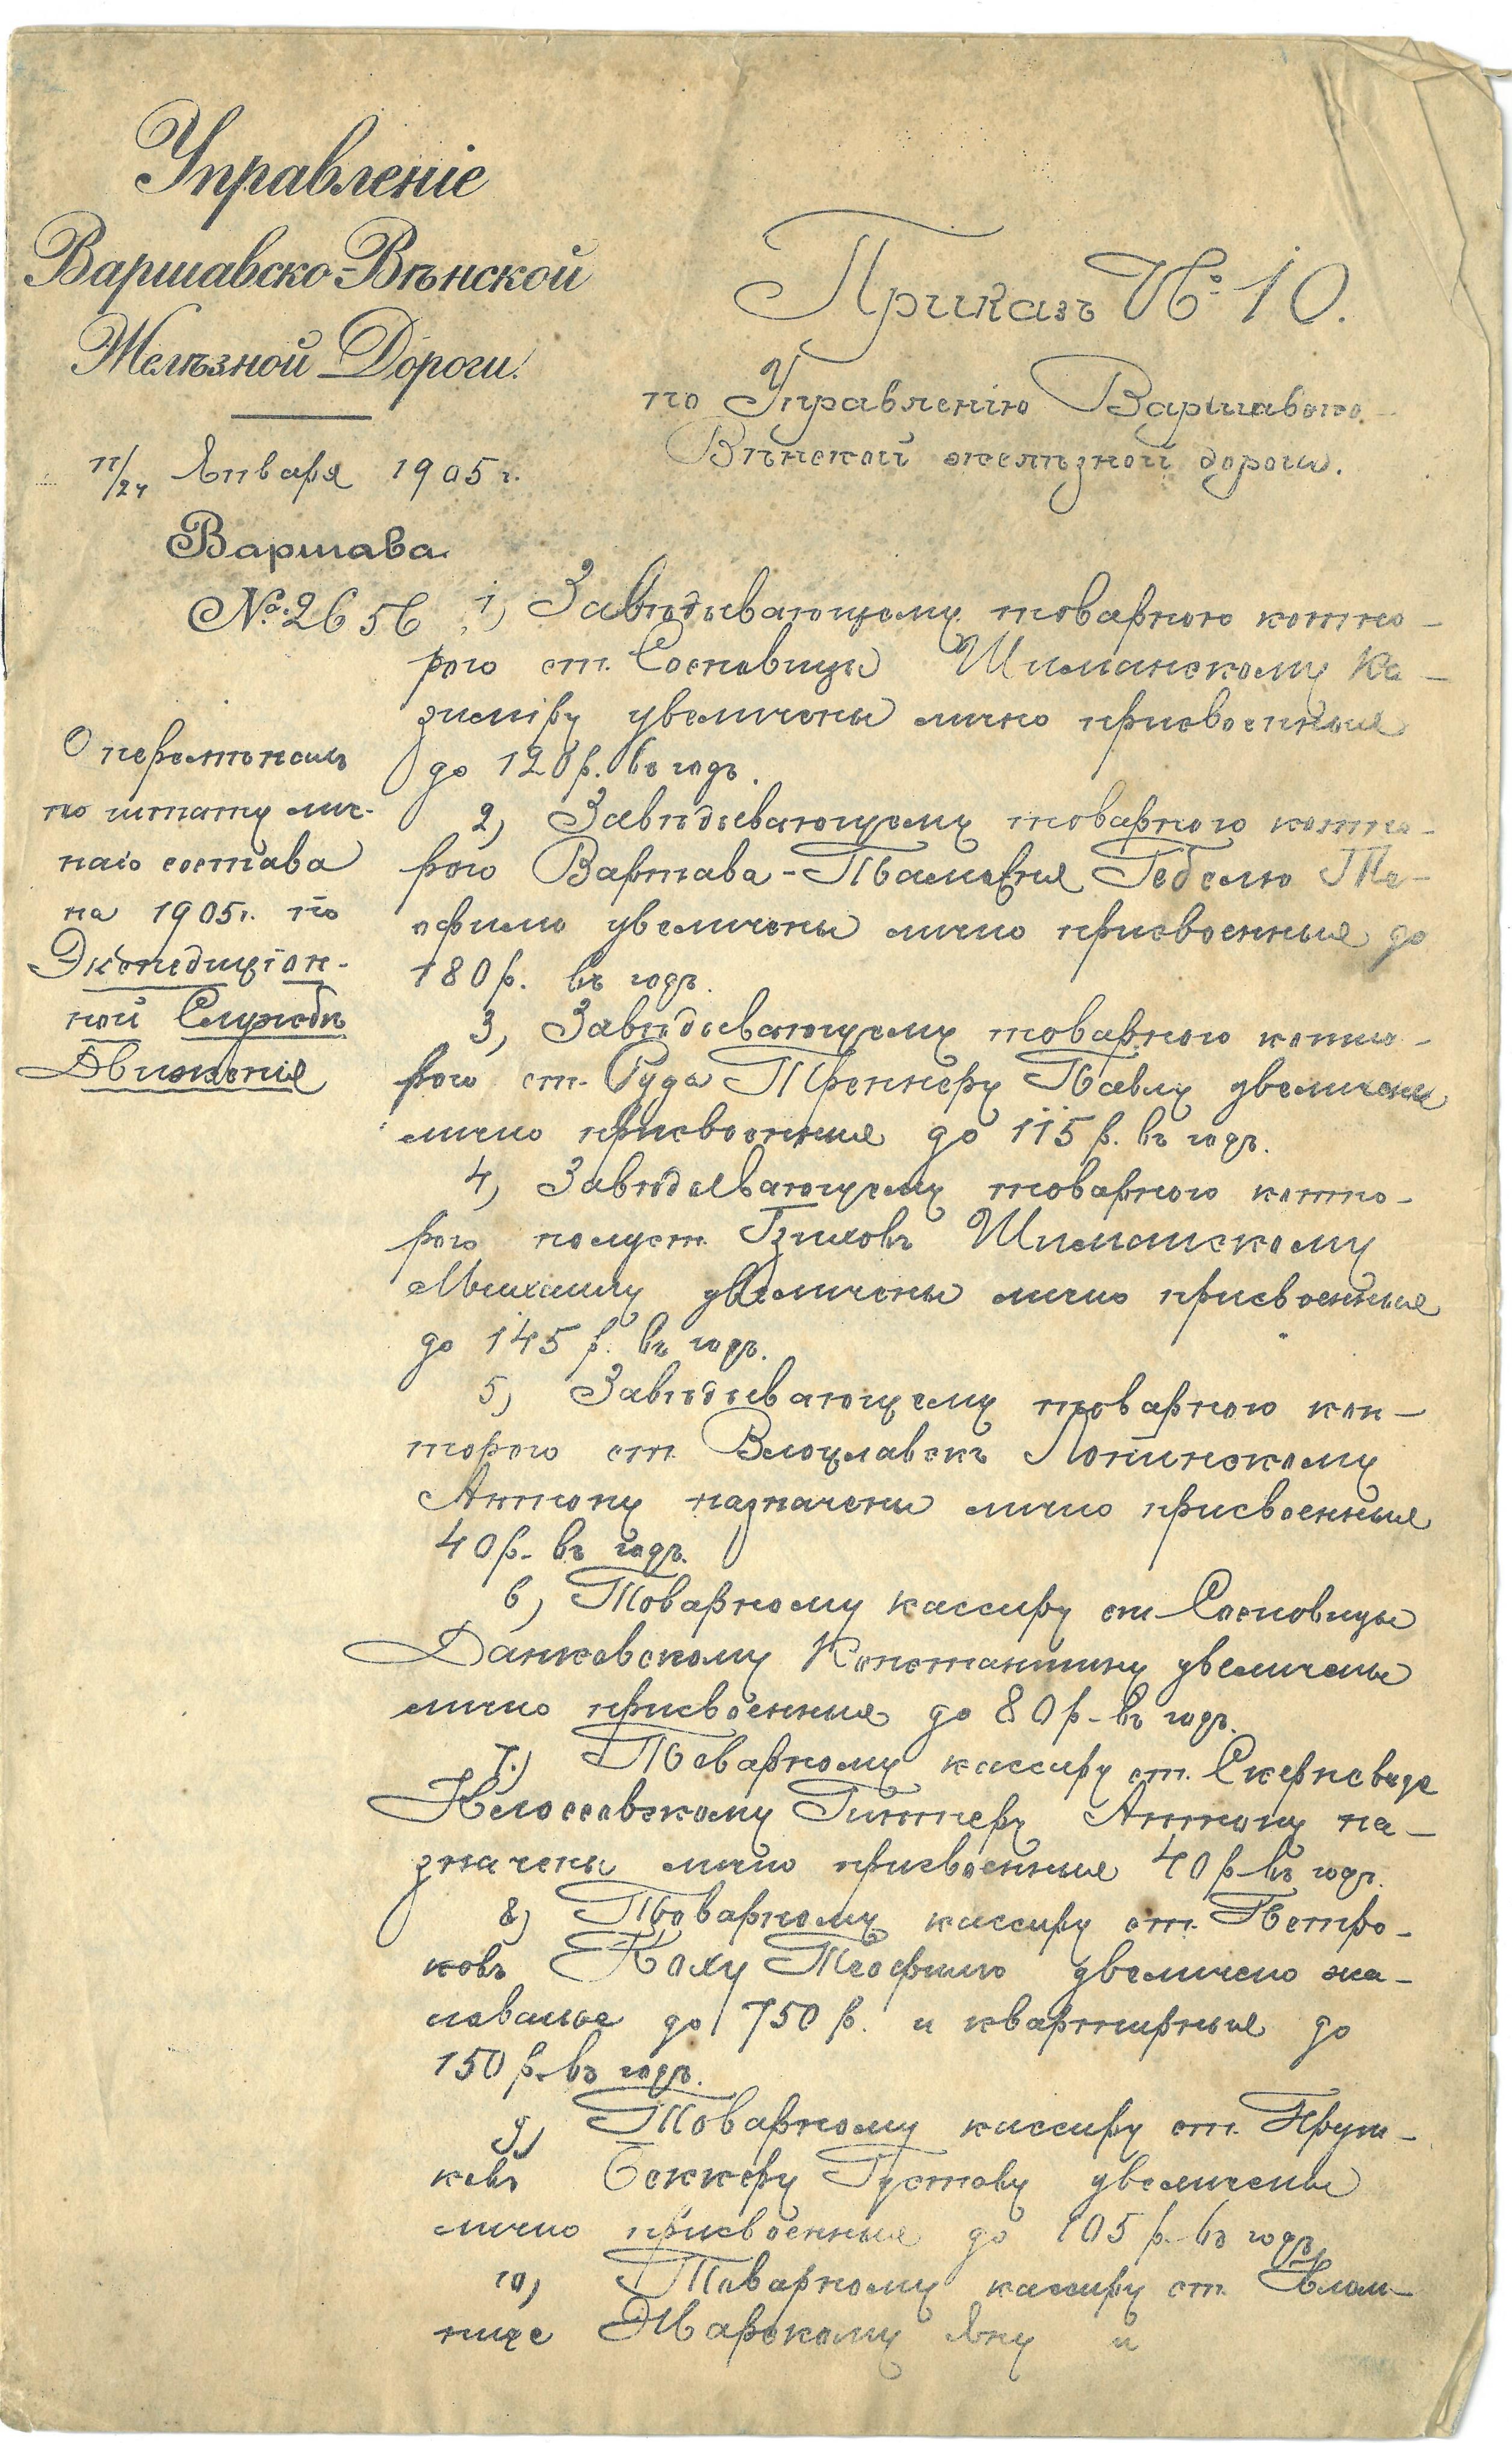 Управленіе
Варшавско-Вѣнской
Желѣзной Дороги.
11/24 Января 1905 г.
Варшава
№ 2656
О перемѣнахъ
по штату лич-
наго состава
на 1905 г. по
Экспедиціон-
ной Службѣ
Движенія
Приказъ № 10.
по Управленію Варшавско-
Вѣнской желѣзной дороги.
1) Завѣдывающему товарною конто-
рою ст. Сосновицы Шиманскому Ка-
зиміру увеличены лично присвоенныя
до 120 р. въ годъ.
2) Завѣдывающему товарною конто-
рою Варшава-Товарная Гебелю Те-
офилю увеличены лично присвоенныя до
180 р. въ годъ.
3) Завѣдывающему товарною конто-
рою ст. Руда Павлу увеличены
лично присвоенныя до 115 р. въ годъ.
4) Завѣдывающему товарною конто-
рою полуст. Шиманскому
Михаилу увеличены лично присвоенныя
до 145 р. въ годъ.
5) Завѣдывающему товарною кон-
торою ст. Влоцлавскъ Лопинскому
Антону назначены лично присвоенныя
40 р. въ годъ.
6) Товарному кассиру ст. Сосновицы
Данковскому Константину увеличены
лично присвоенныя до 80 р. въ годъ.
7) Товарному кассиру ст. Скерневицы
Клоссовскому Антону на-
значены лично присвоенныя 40 р. въ годъ.
8) Товарному кассиру ст. Петро-
ковъ Коху Теофилю увеличено жа-
лованье до 750 р. и квартирныя до
150 р. въ годъ.
9) Товарному кассиру ст. Пруш-
ковъ Беккеру Густаву увеличены
лично присвоенныя до 105 р. въ годъ.
10) Товарному кассиру ст.
Яну и